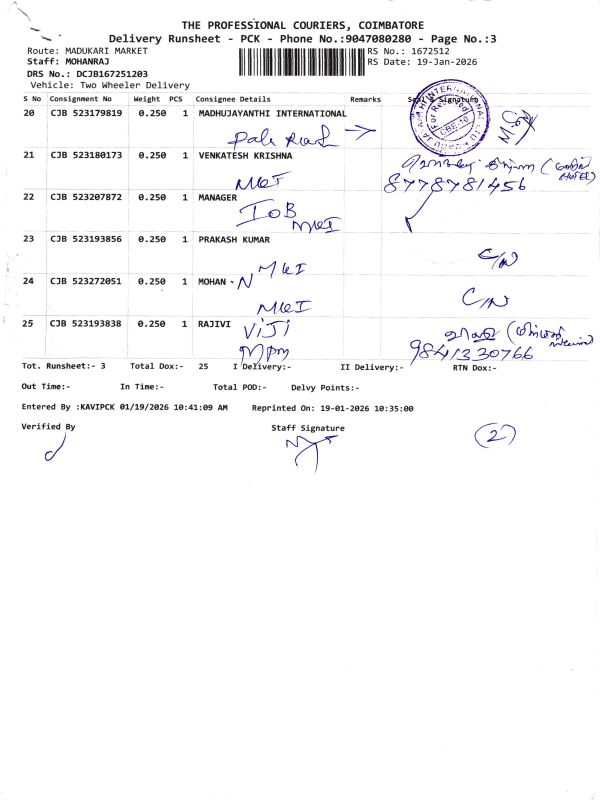 THE PROFESSIONAL COURIERS, COIMBATORE
Delivery Runsheet - PCK - Phone No.:9047080280 - Page No.:3
Route: MADUKARI MARKET RS No.: 1672512
Staff: MOHANRAJ RS Date: 19-Jan-2026
DRS No.: DCJB167251203
Vehicle: Two Wheeler Delivery
S No Consignment No Weight PCS Consignee Details Remarks Seal & Signature
20 CJB 523179819 0.250 1 MADHUJAYANTHI INTERNATIONAL
21 CJB 523180173 0.250 1 VENKATESH KRISHNA
MKT 8778781456
22 CJB 523207872 0.250 1 MANAGER
IOB
MKI
23 CJB 523193856 0.250 1 PRAKASH KUMAR
MKI C/N
24 CJB 523272051 0.250 1 MOHAN - N
MKI C/N
25 CJB 523193838 0.250 1 RAJIVI
VIJI
Mpm 9841330766
Tot. Runsheet:- 3 Total Dox:- 25 I Delivery:- II Delivery:- RTN Dox:-
Out Time:- In Time:- Total POD:- Delvy Points:-
Entered By :KAVIPCK 01/19/2026 10:41:09 AM Reprinted On: 19-01-2026 10:35:00
Verified By Staff Signature
(2)